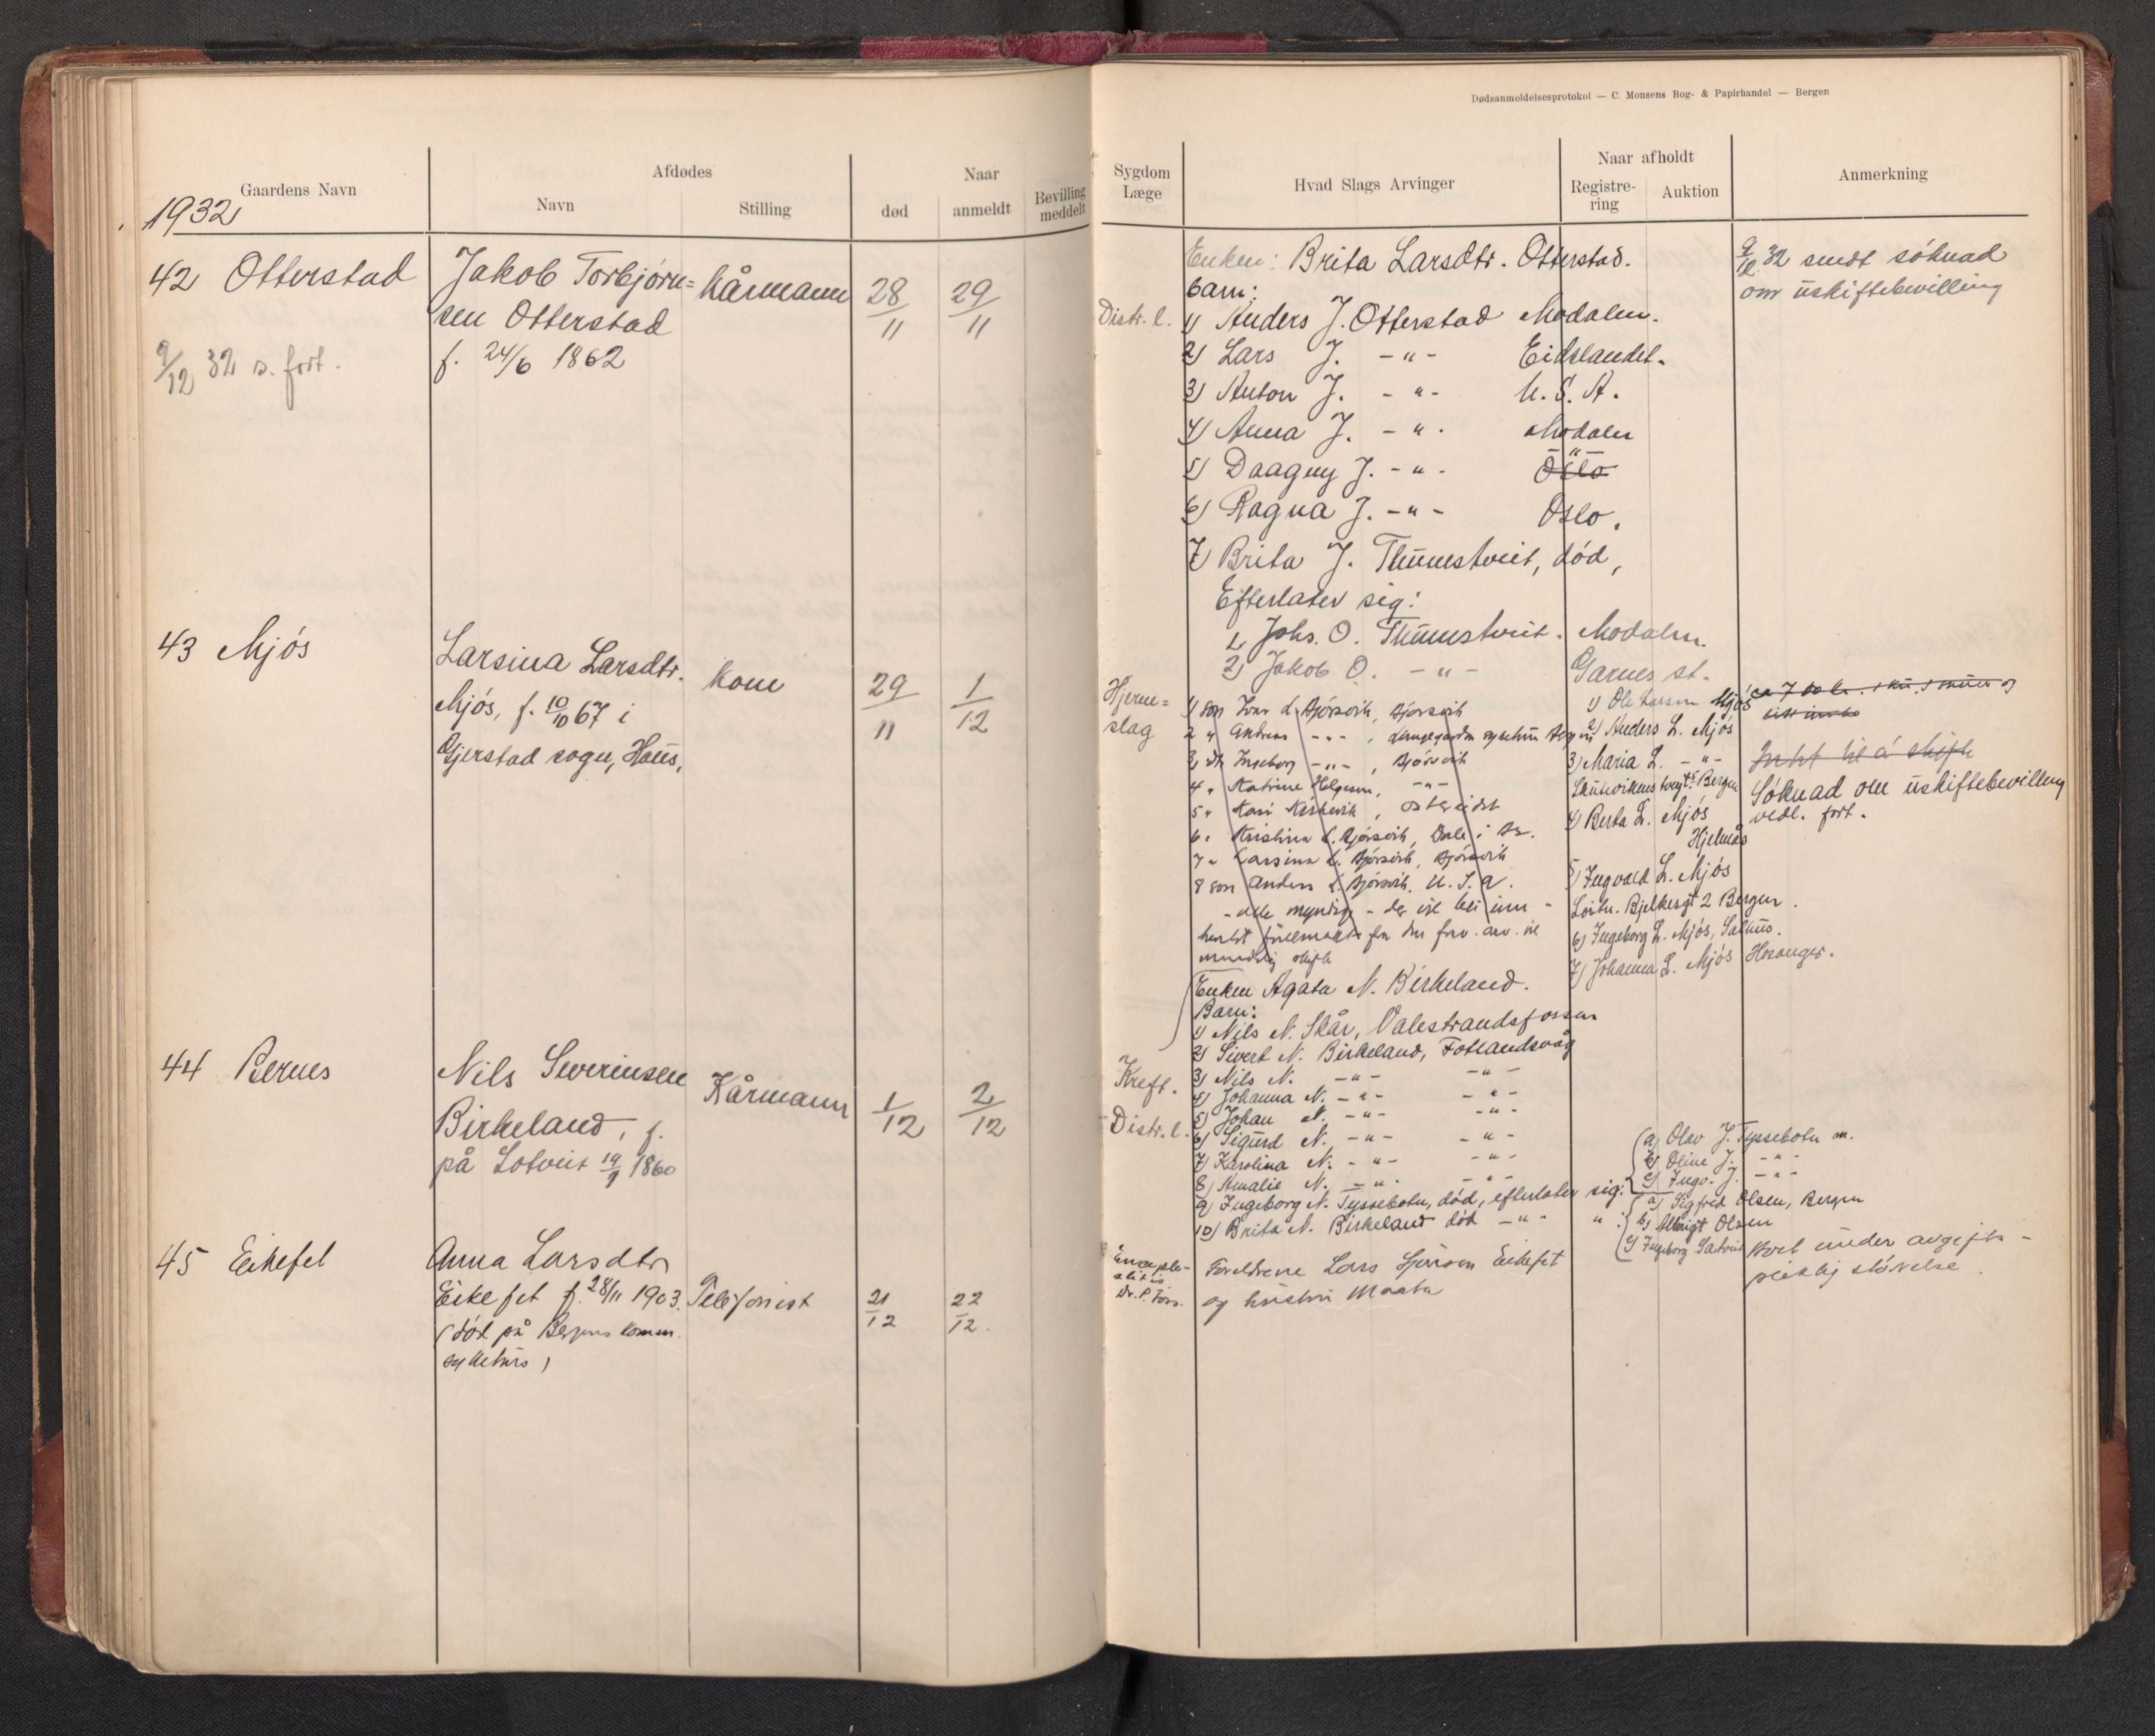 Dødsanmeldelsesprotokol — C. Monsens Bog- & Papirhandel — Bergen
Gaardens Navn
Afdødes
Navn
Stilling
Naar
død
anmeldt
Bevilling
meddelt
Sygdom
Læge
Hvad Slags Arvinger
Naar afholdt
Registre-
ring
Auktion
Anmerkning
1932
42 Otterstad
9/12 32 s. fort.
Jakob Torbjørn=
sen Otterstad
f. 24/6 1862
Kårmann
28/11
29/11
Distr. l.
Enken: Brita Larsdtr. Otterstad.
barn:
1) Anders J. Otterstad Modalen.
2) Lars J. -"- Eidslandet.
3) Anton J. -"- U.S.A.
4) Anna J. -"- Modalen
5) Daagny J. -"- Oslo -"-
6) Ragna J. -"- Oslo.
7) Brita J. Thunestveit, død,
Efterlater sig:
1, Johs. O. Thunestveit. Modalen.
2) Jakob O. -"- Garnes st.
9/12 32 sendt søknad
om uskiftebevilling
43 Mjøs
Larsina Larsdtr.
Mjøs, f. 10/10 67 i
Gjerstad sogn, Haus,
Kone
29/11
1/12
Hjerne=
slag
1) søn Ivar L. Bjørsvik, Bjørsvik
2 " Andreas -"-,
3, dtr Ingeborg -"-, Bjørsvik
4 " Katrine Helgesen, -"-
5 " Kari, Ostereidet
6 " Kristina L. Bjørsvik, Dale i Br.
7 " Larsina L. Bjørsvik, Bjørsvik
8 søn Anders L. Bjørsvik, U.S.A.
- alle myndige - de vil bli inn-
hentet fullmakt fra
skifte
1) Ole Larsen Mjøs
2) Anders L. Mjøs
3) Maria L. -"-
Bergen
4) Berta L. Mjøs
Hjelmås
5) Ingvald L. Mjøs
Løitn. Bjelkesgt 2 Bergen.
6) Ingeborg L. Mjøs, Salhus.
7) Johanna L. Mjøs Hosanger.
Intet til å skifte
Søknad om uskiftebevilling
vedl. fort.
44 Bernes
Nils Severinsen
Birkeland, f.
på Lotveit 19/9 1860
Kårmann
1/12
2/12
Kreft.
Distr. l.
Enken Agata N. Birkeland.
Barn:
1) Nils N. Skår, Valestrandsfossen
2) Sivert N. Birkeland, Fotlandsvåg
3) Nils N. -"- -"-
4) Johanna N. -"- -"-
5) Johan N. -"- -"-
6) Sigurd N. -"- -"-
7) Karolina N. -"- -"-
8) Amalie N. -"- -"-
9) Ingeborg N. Tyssebotn, død, efterlater sig:
10) Brita N. Birkeland død -"- "
a) Olav J. Tyssebotn m.
b) Oline J. -"-
c) Ingv. J. -"-
a) Sigfred Olsen, Bergen
b) Olsen
c) Ingeborg
45 Eikefet
Anna Larsdtr
Eikefet f. 28/11 1903.
(død på Bergens komm.
sykehus)
Telefonist
21/12
22/12.
Encepha-
litis
Foreldrene Lars Eikefet
og hustru Marta
Boet under avgifts-
pliktig størrelse.